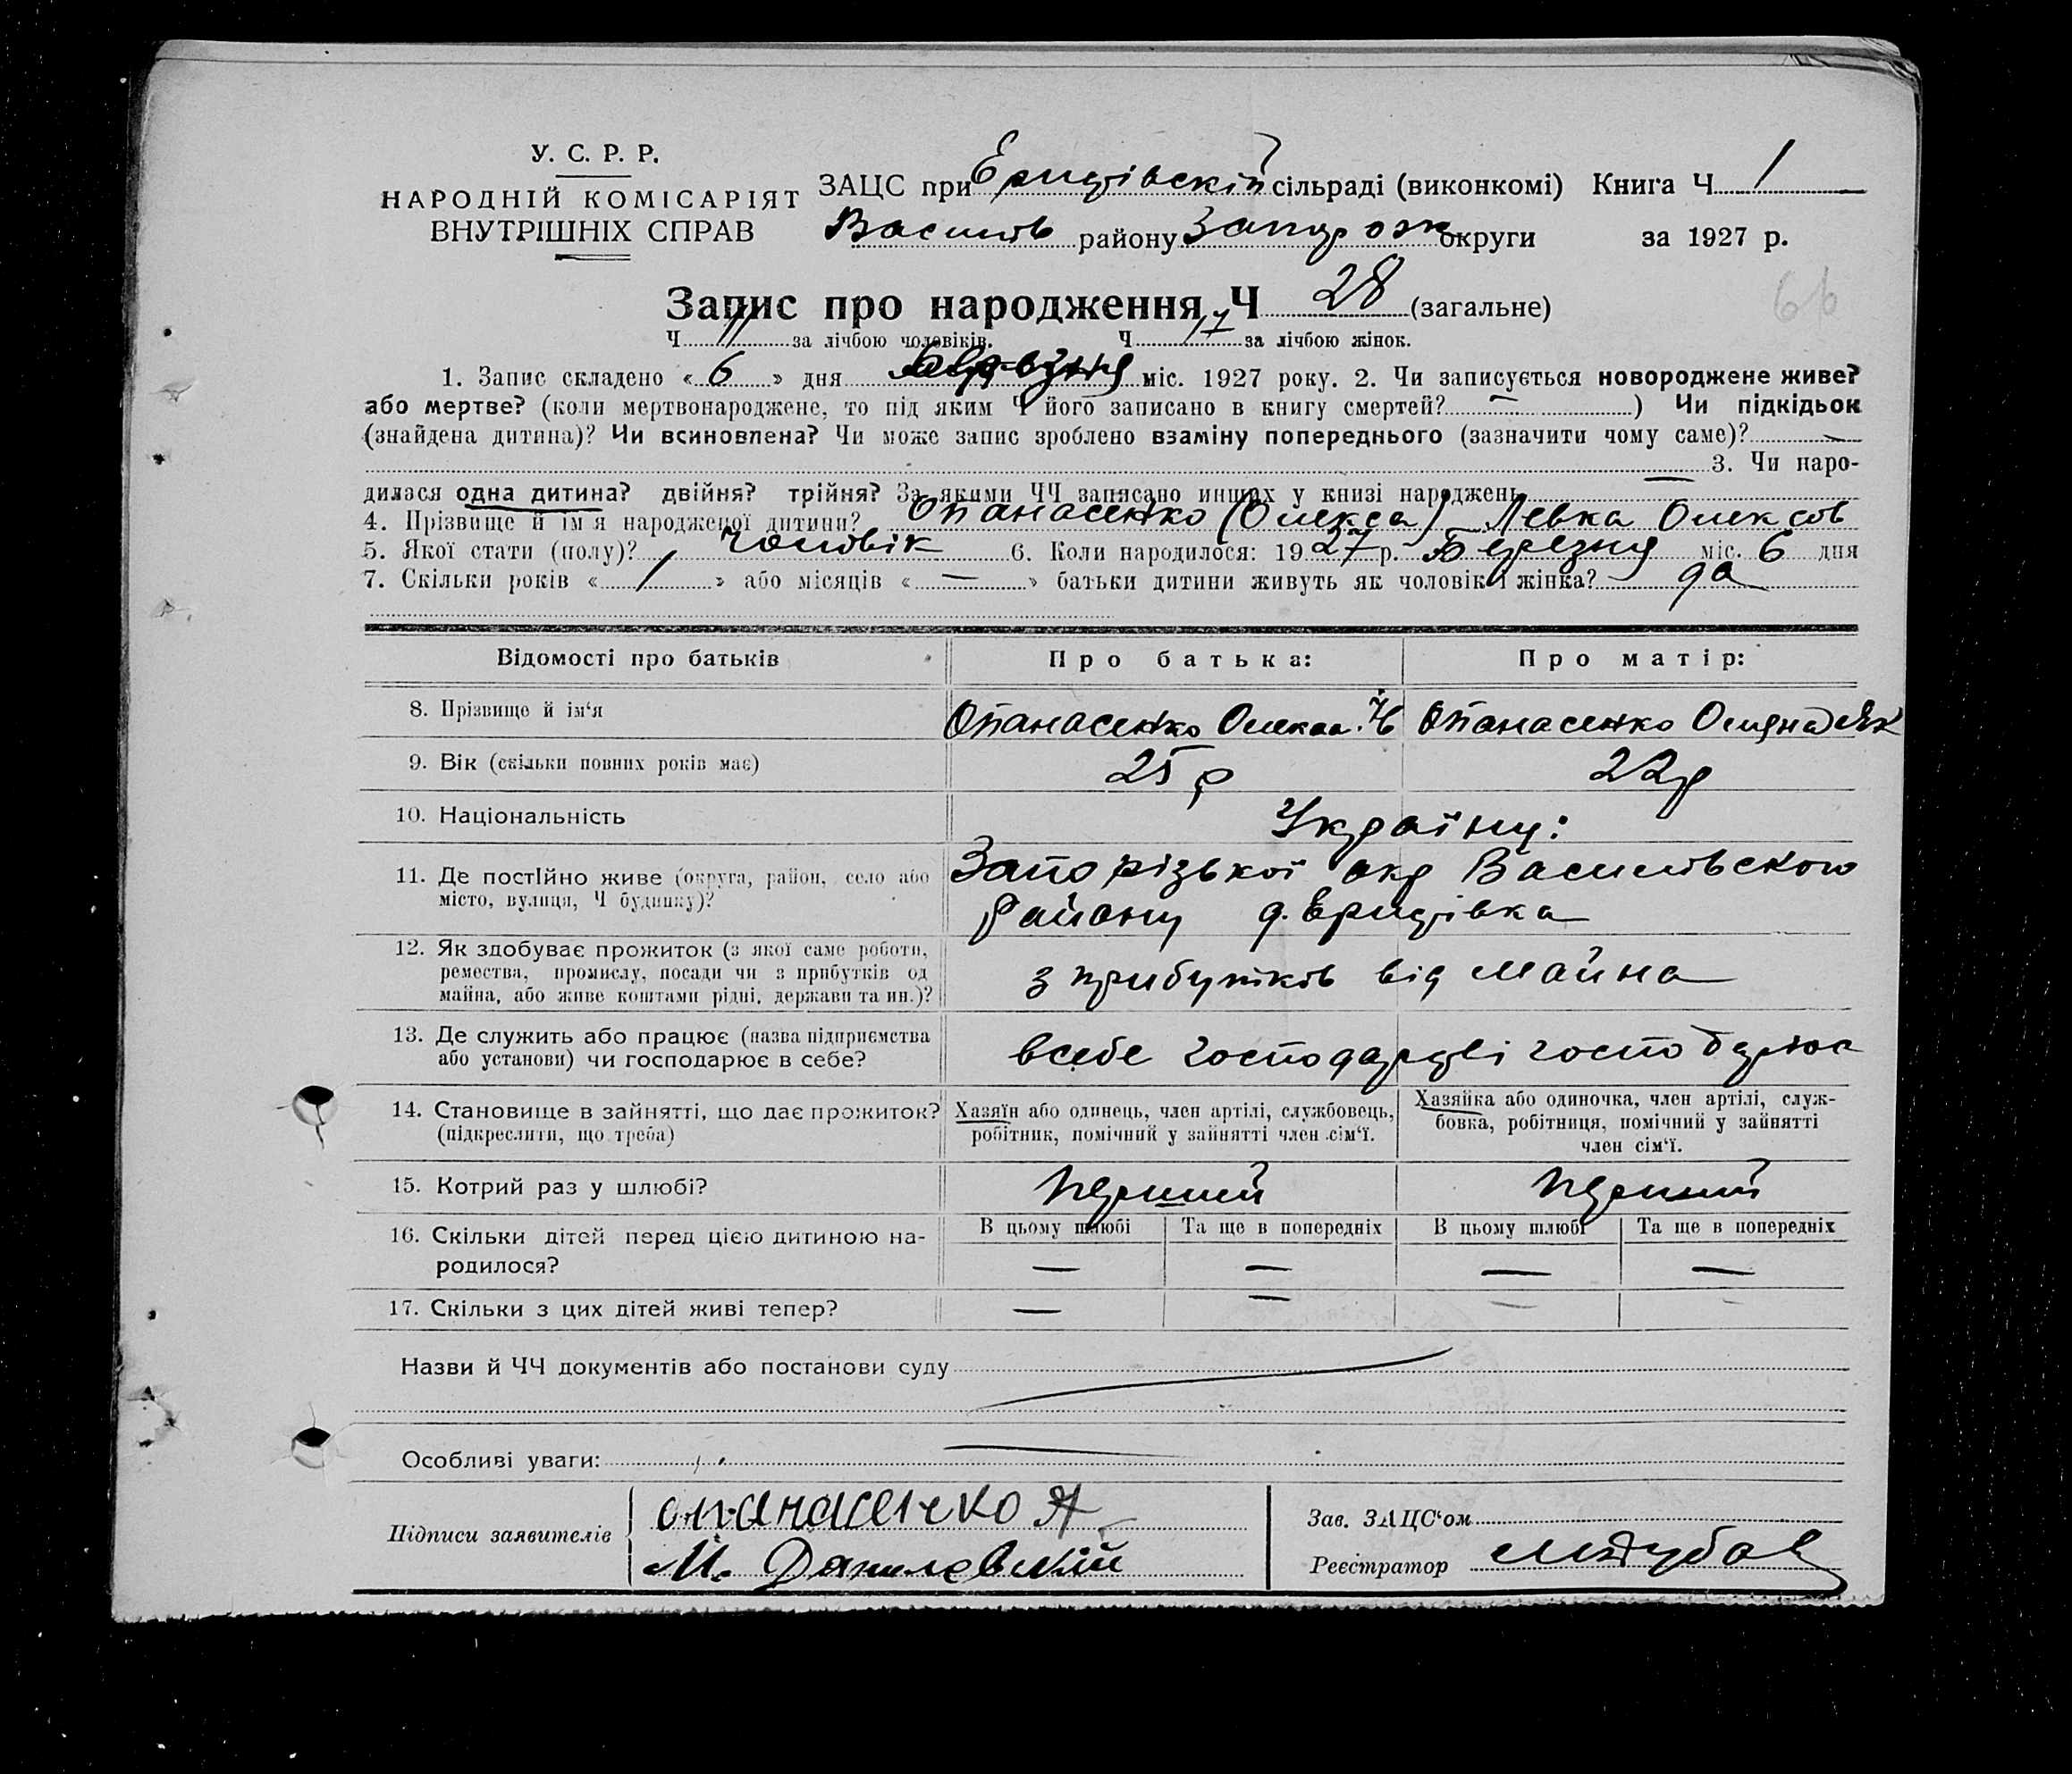 У. С. Р. Р.
НАРОДНІЙ КОМІСАРІЯТ
ВНУТРІШНІХ СПРАВ
ЗАЦС при сільраді (виконкомі) Книга Ч 1
Василів району Запорож округи за 1927 р.
66
Запис про народження, Ч 28 (загальне)
Ч 11 за лічбою чоловіків. Ч 17 за лічбою жінок.
1. Запис складено « 6 » дня березня міс. 1927 року. 2. Чи записується новороджене живе?
або мертве? (коли мертвонароджене, то під яким Ч його записано в книгу смертей? — ) Чи підкідьок
(знайдена дитина)? Чи всиновлена? Чи може запис зроблено взаміну попереднього (зазначити чому саме)? —
— 3. Чи наро-
дилася одна дитина? двійня? трійня? За якими ЧЧ записано инших у книзі народжень
4. Прізвище й ім'я народженої дитини? Опанасенко (Олекса) Левка Олексов
5. Якої стати (полу)? Чоловік 6. Коли народилося: 1927 р. Березня міс. 6 дня
7. Скільки років « 1 » або місяців « — » батьки дитини живуть як чоловік і жінка? да
Відомості про батьків Про батька: Про матір:
8. Прізвище й ім'я Опанасенко Опанасенко
9. Вік (скільки повних років має) 25 р 22 р
10. Національність Україну:
11. Де постійно живе (округа, район, село або Запорізької окр Василівского
місто, вулиця, Ч будинку)? Району
12. Як здобуває прожиток (з якої саме роботи,
ремества, промислу, посади чи з прибутків од з прибутків від майна
майна, або живе коштами рідні, держави та ин.)?
13. Де служить або працює (назва підприємства
або установи) чи господарює в себе? всебе
14. Становище в зайнятті, що дає прожиток?
(підкреслити, що треба)
Хазяїн або одинець, член артілі, службовець,
робітник, помічний у зайнятті член сім'ї.
Хазяйка або одиночка, член артілі, служ-
бовка, робітниця, помічний у зайнятті
член сім'ї.
15. Котрий раз у шлюбі? перший перший
16. Скільки дітей перед цією дитиною на-
родилося?
В цьому шлюбі Та ще в попередніх В цьому шлюбі Та ще в попередніх
— — — —
17. Скільки з цих дітей живі тепер? — — — —
Назви й ЧЧ документів або постанови суду
Особливі уваги:
Підписи заявителів
опанасенко А
М. Данилевский
Зав. ЗАЦС'ом
Реєстратор